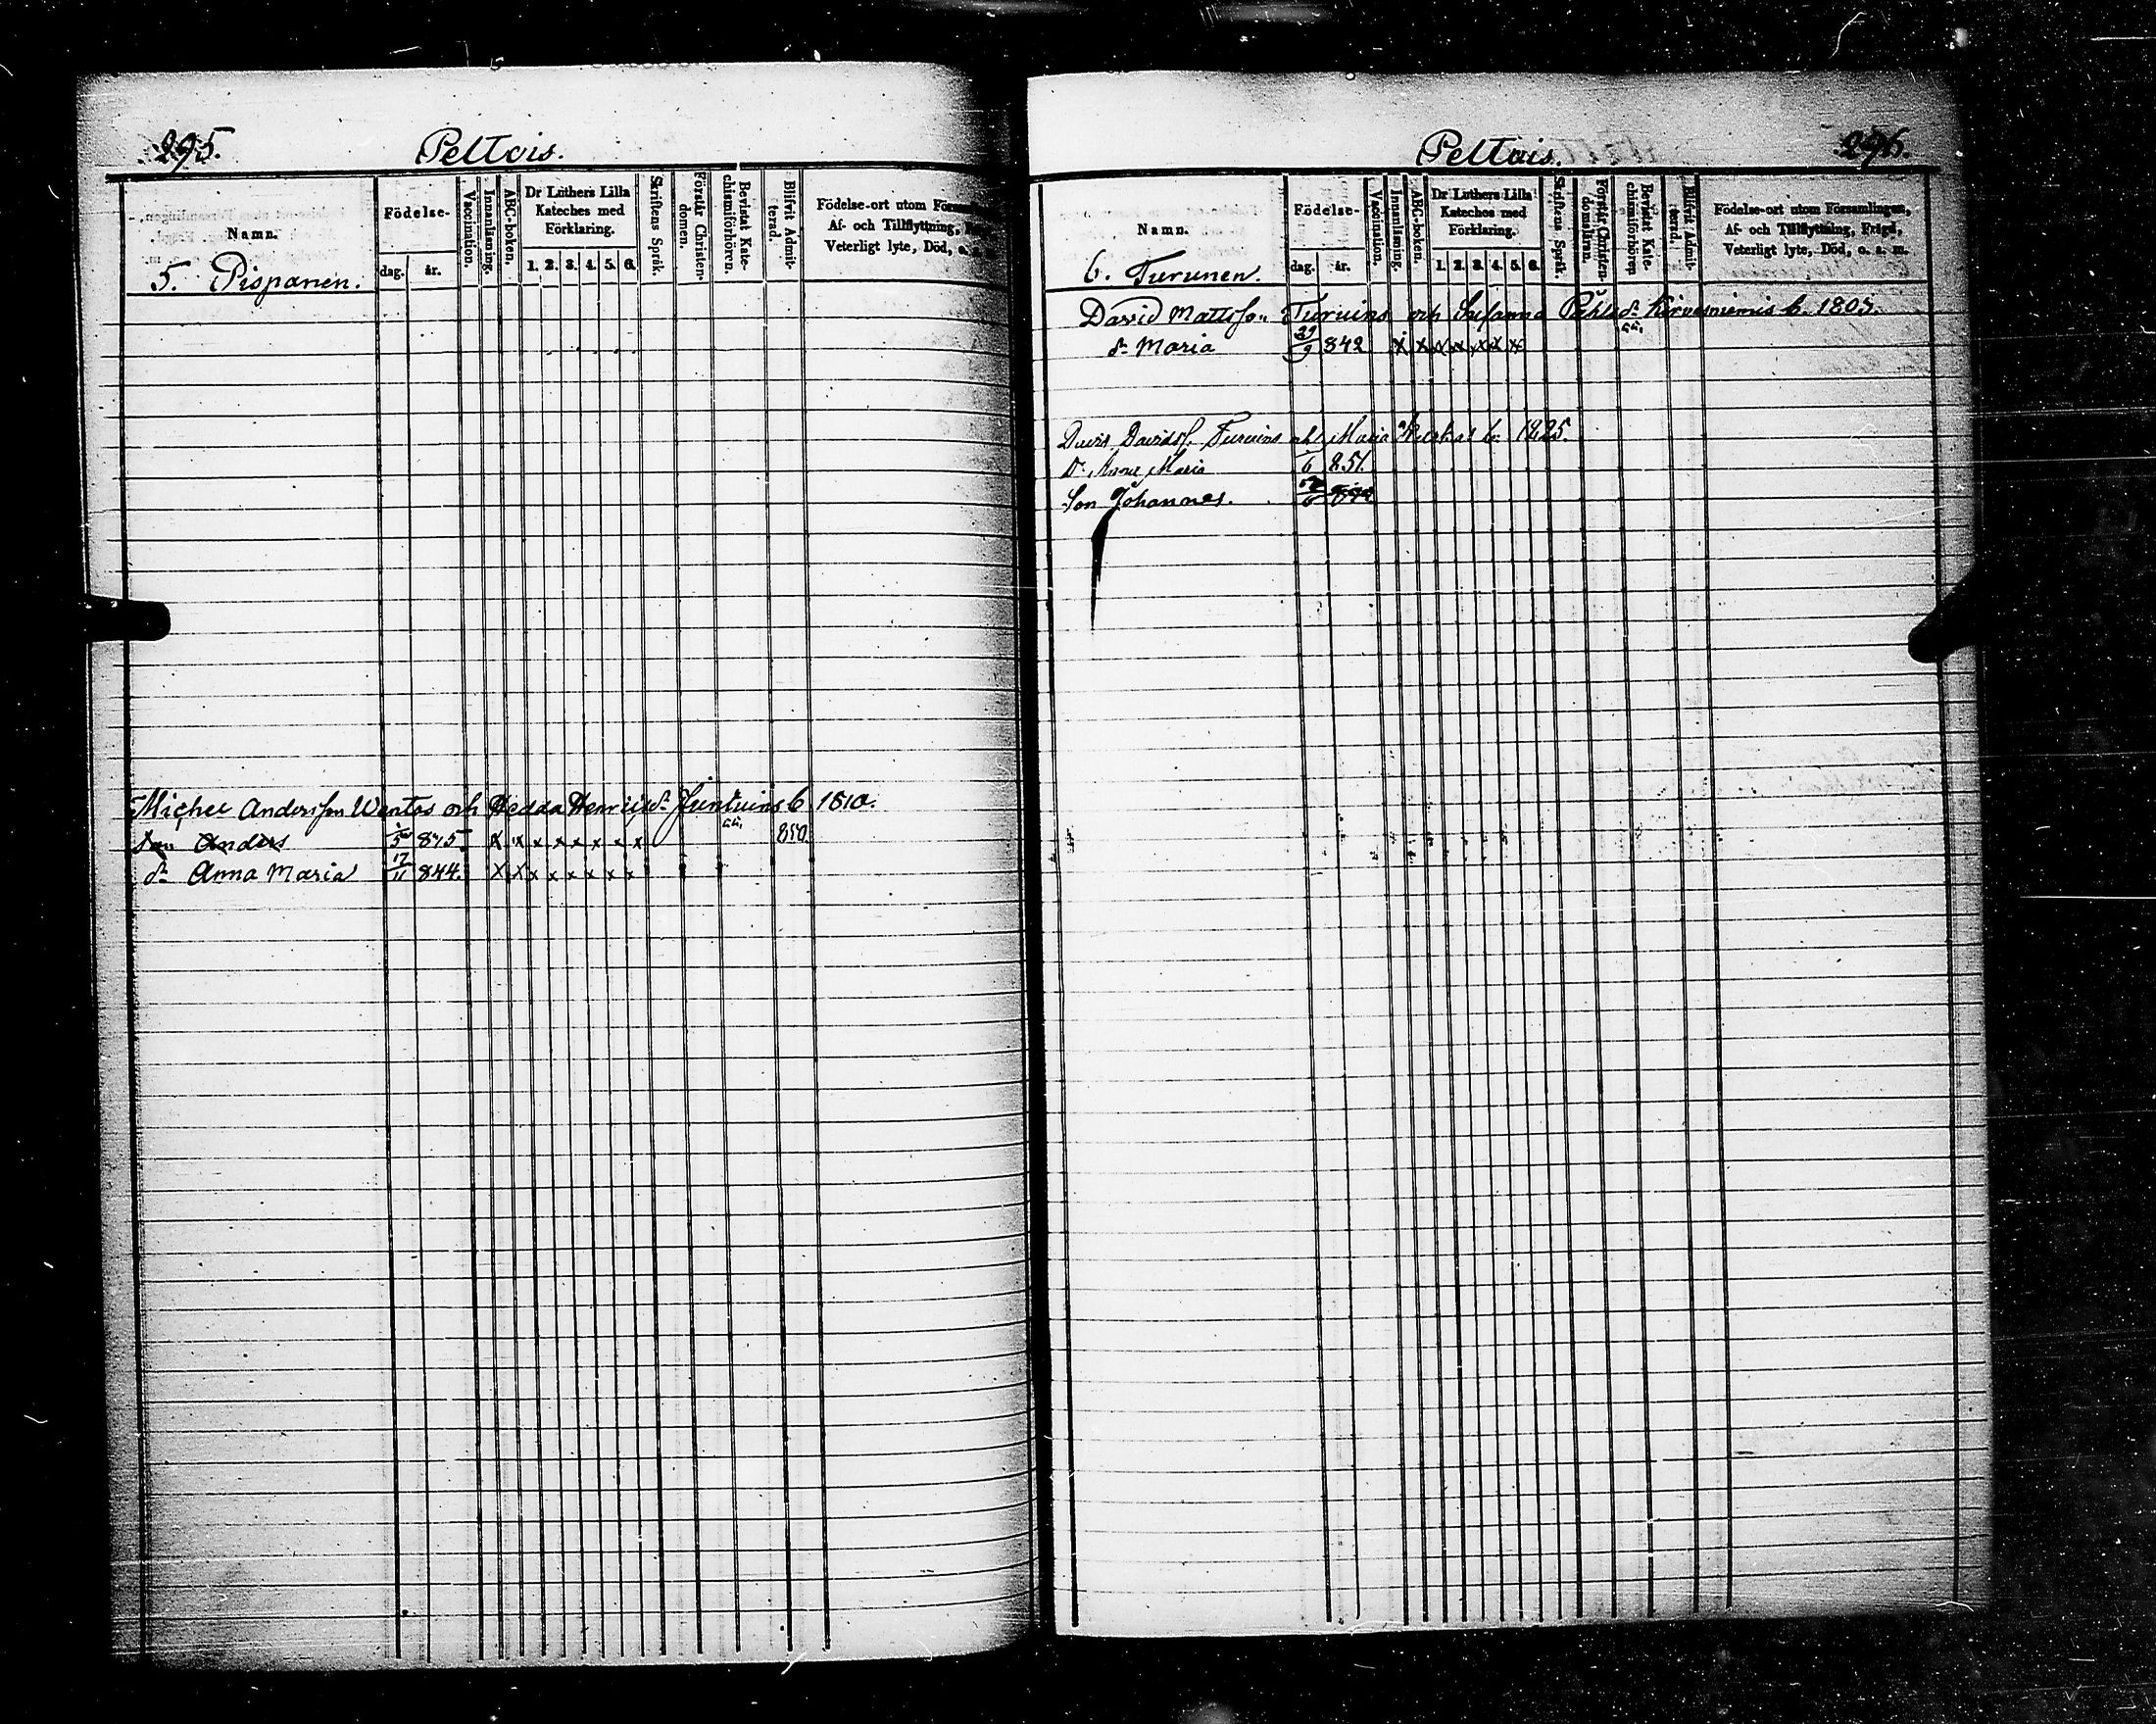 295.
Peltois.
Namn.
Födelse-
dag.
år.
Vaccination.
Innanläsning.
ABC-boken.
Dr Luthers Lilla
Kateches med
Förklaring.
1. 2. 3. 4. 5. 6.
Skriftens Språk.
Förstår Christen-
domen.
Bevistat Kate-
chismiförhören.
Blifvit Admit-
terad.
Födelse-ort utom
Af- och Tillflyttning,
Veterligt lyte, Död, o. a. m.
5. Pispanen.
Michel Andersson Wentos och Hedda Henricsdr b. 1810.
Son Anders 5 845 x x x x x x x x 850
dr Anna Maria 17/11 844. x x x x x x x x
Peltois.
296.
Namn.
Födelse-
dag.
år.
Vaccination.
Innanläsning.
ABC-boken.
Dr Luthers Lilla
Kateches med
Förklaring.
1. 2. 3. 4. 5. 6.
Skriftens Språk.
Förstår Christen-
domsläran.
Bevistat Kate-
chismiförhören
Blifvit Admit-
terad.
Födelse-ort utom Församlingen,
Af- och Tillflyttning, Frägd,
Veterligt lyte, Död, o. a. m.
6. Turunen.
David Mattsson Turuins och Susanna Påhlsdr Kirvesniemis b. 1805.
dr Maria 29/9 842 x x x x x x x
David Davidss. Turuins och Maria b. 1825.
Dr Anna Maria 6 851.
Son Johannes.